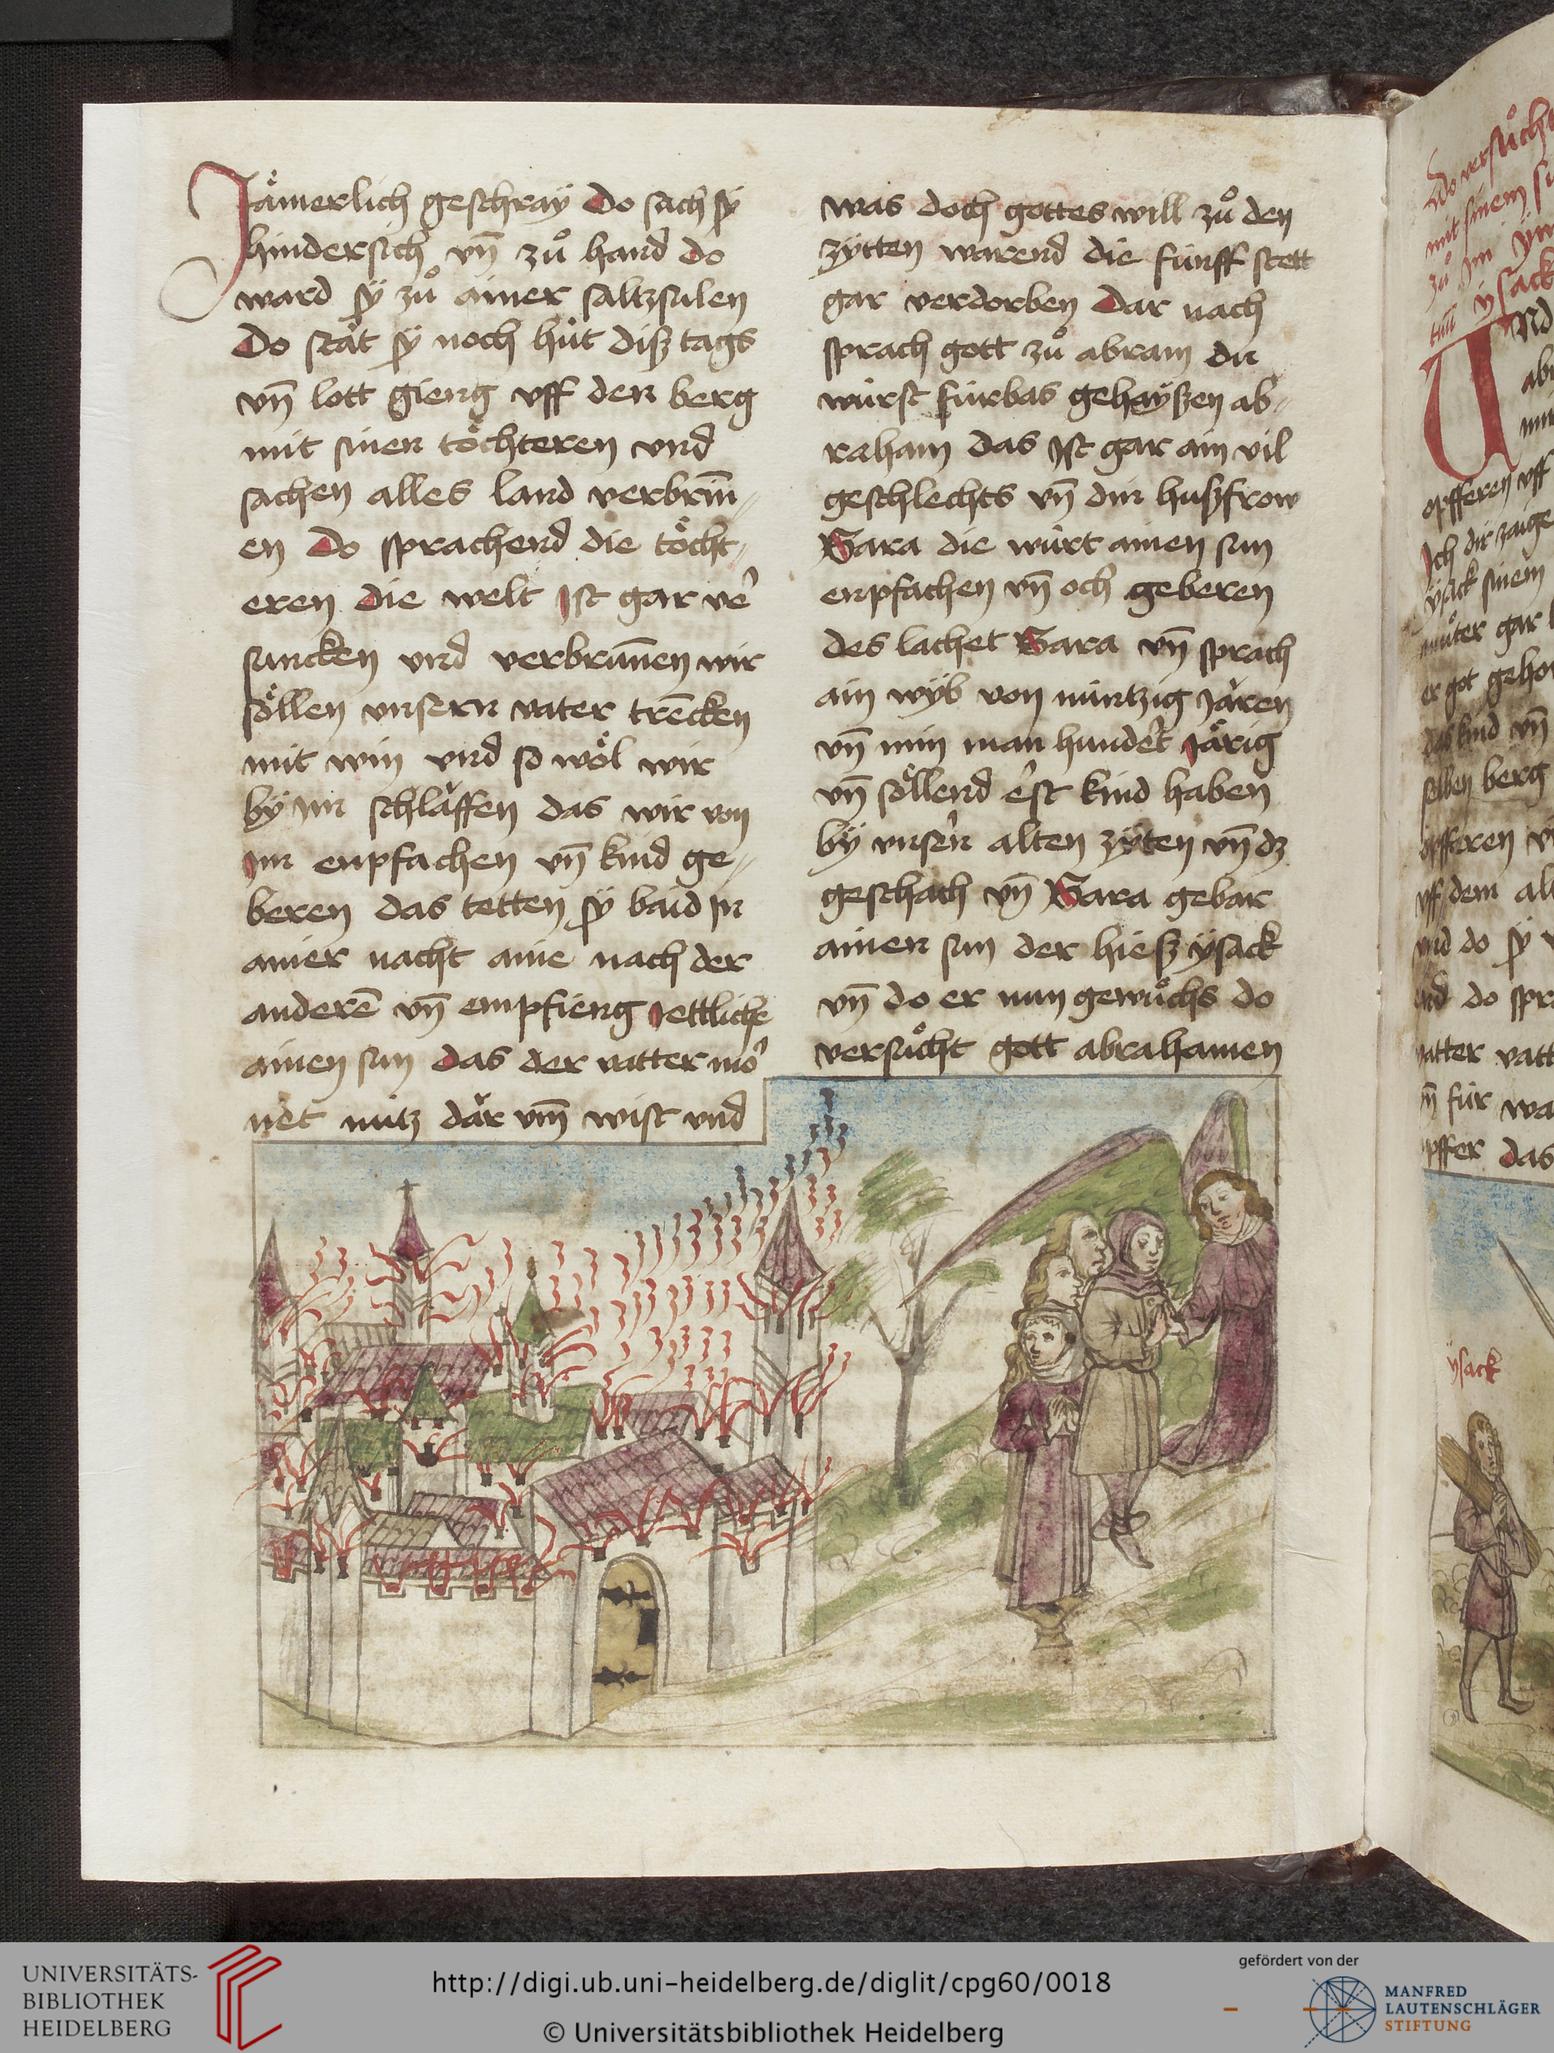 Jämerlich geschraÿ Do sach sÿ
hindersich vn̄ zů hand do
ward sÿ zů ainer saltzsulen
Do stăt sÿ noch hüt disz tags
vn̄ lott gieng vff den berg
mit sinen töchteren vnd
sachen alles land verbrin̄-
en Do sprachend die töcht-
eren die welt Ist gar ver
suncken vnd verbrun̄en wir
söllen vnsern vater trēcken
mit win vnd so wöl wir
bÿ im schlăffen das wir von
Im enpfachen vn̄ kind ge-
beren das tetten sÿ baid In
ainer nacht aine nach der
anderē vn̄ empfieng Jettliche
ainen sun das der vatter mor
net nütz dăr vm̄ wist vnd
was doch gottes will zů den
zÿtten warend die fünff stett
gar verdorben Dar nach
sprach gott zů abram du
würst fürbas gehaÿszen ab-
raham das Ist gar ain vil
geschlechts vn̄ din huszfrow
Sara die würt ainen sun
enpfachen vn̄ och geberen
des lachet Sara vn̄ sprach
ain wÿb von nüntzig Jăren
vn̄ min man hundert Järig
vn̄ söllend erst kind haben
bÿ vnsern alten zÿten vn̄ dz
geschach vn̄ Sara gebar
ainen sun der hiesz ÿsack
vn̄ do er nun gewůchs do
versůcht gott abrahamen
mit sinem
ÿsack
opfferen vff
Ich dir zaige
ÿsack sinem
můter gar
er got
das kind vn̄
selben berg
opfferen
vff dem
vnd do sÿ
vnd do
vatter
für
opffer das
ÿsack
UNIVERSITÄTS-
BIBLIOTHEK
HEIDELBERG
http://digi.ub.uni-heidelberg.de/diglit/cpg60/0018
© Universitätsbibliothek Heidelberg
gefördert von der
MANFRED
LAUTENSCHLÄGER
STIFTUNG